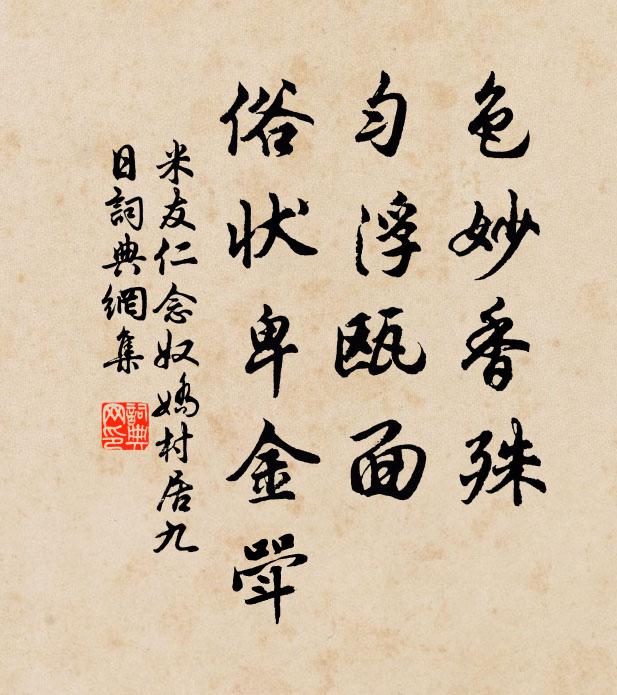 色妙香殊
匀浮瓯面
俗状卑金斝
米友仁念奴嬌村居九
日詞典網集
詞典
网印